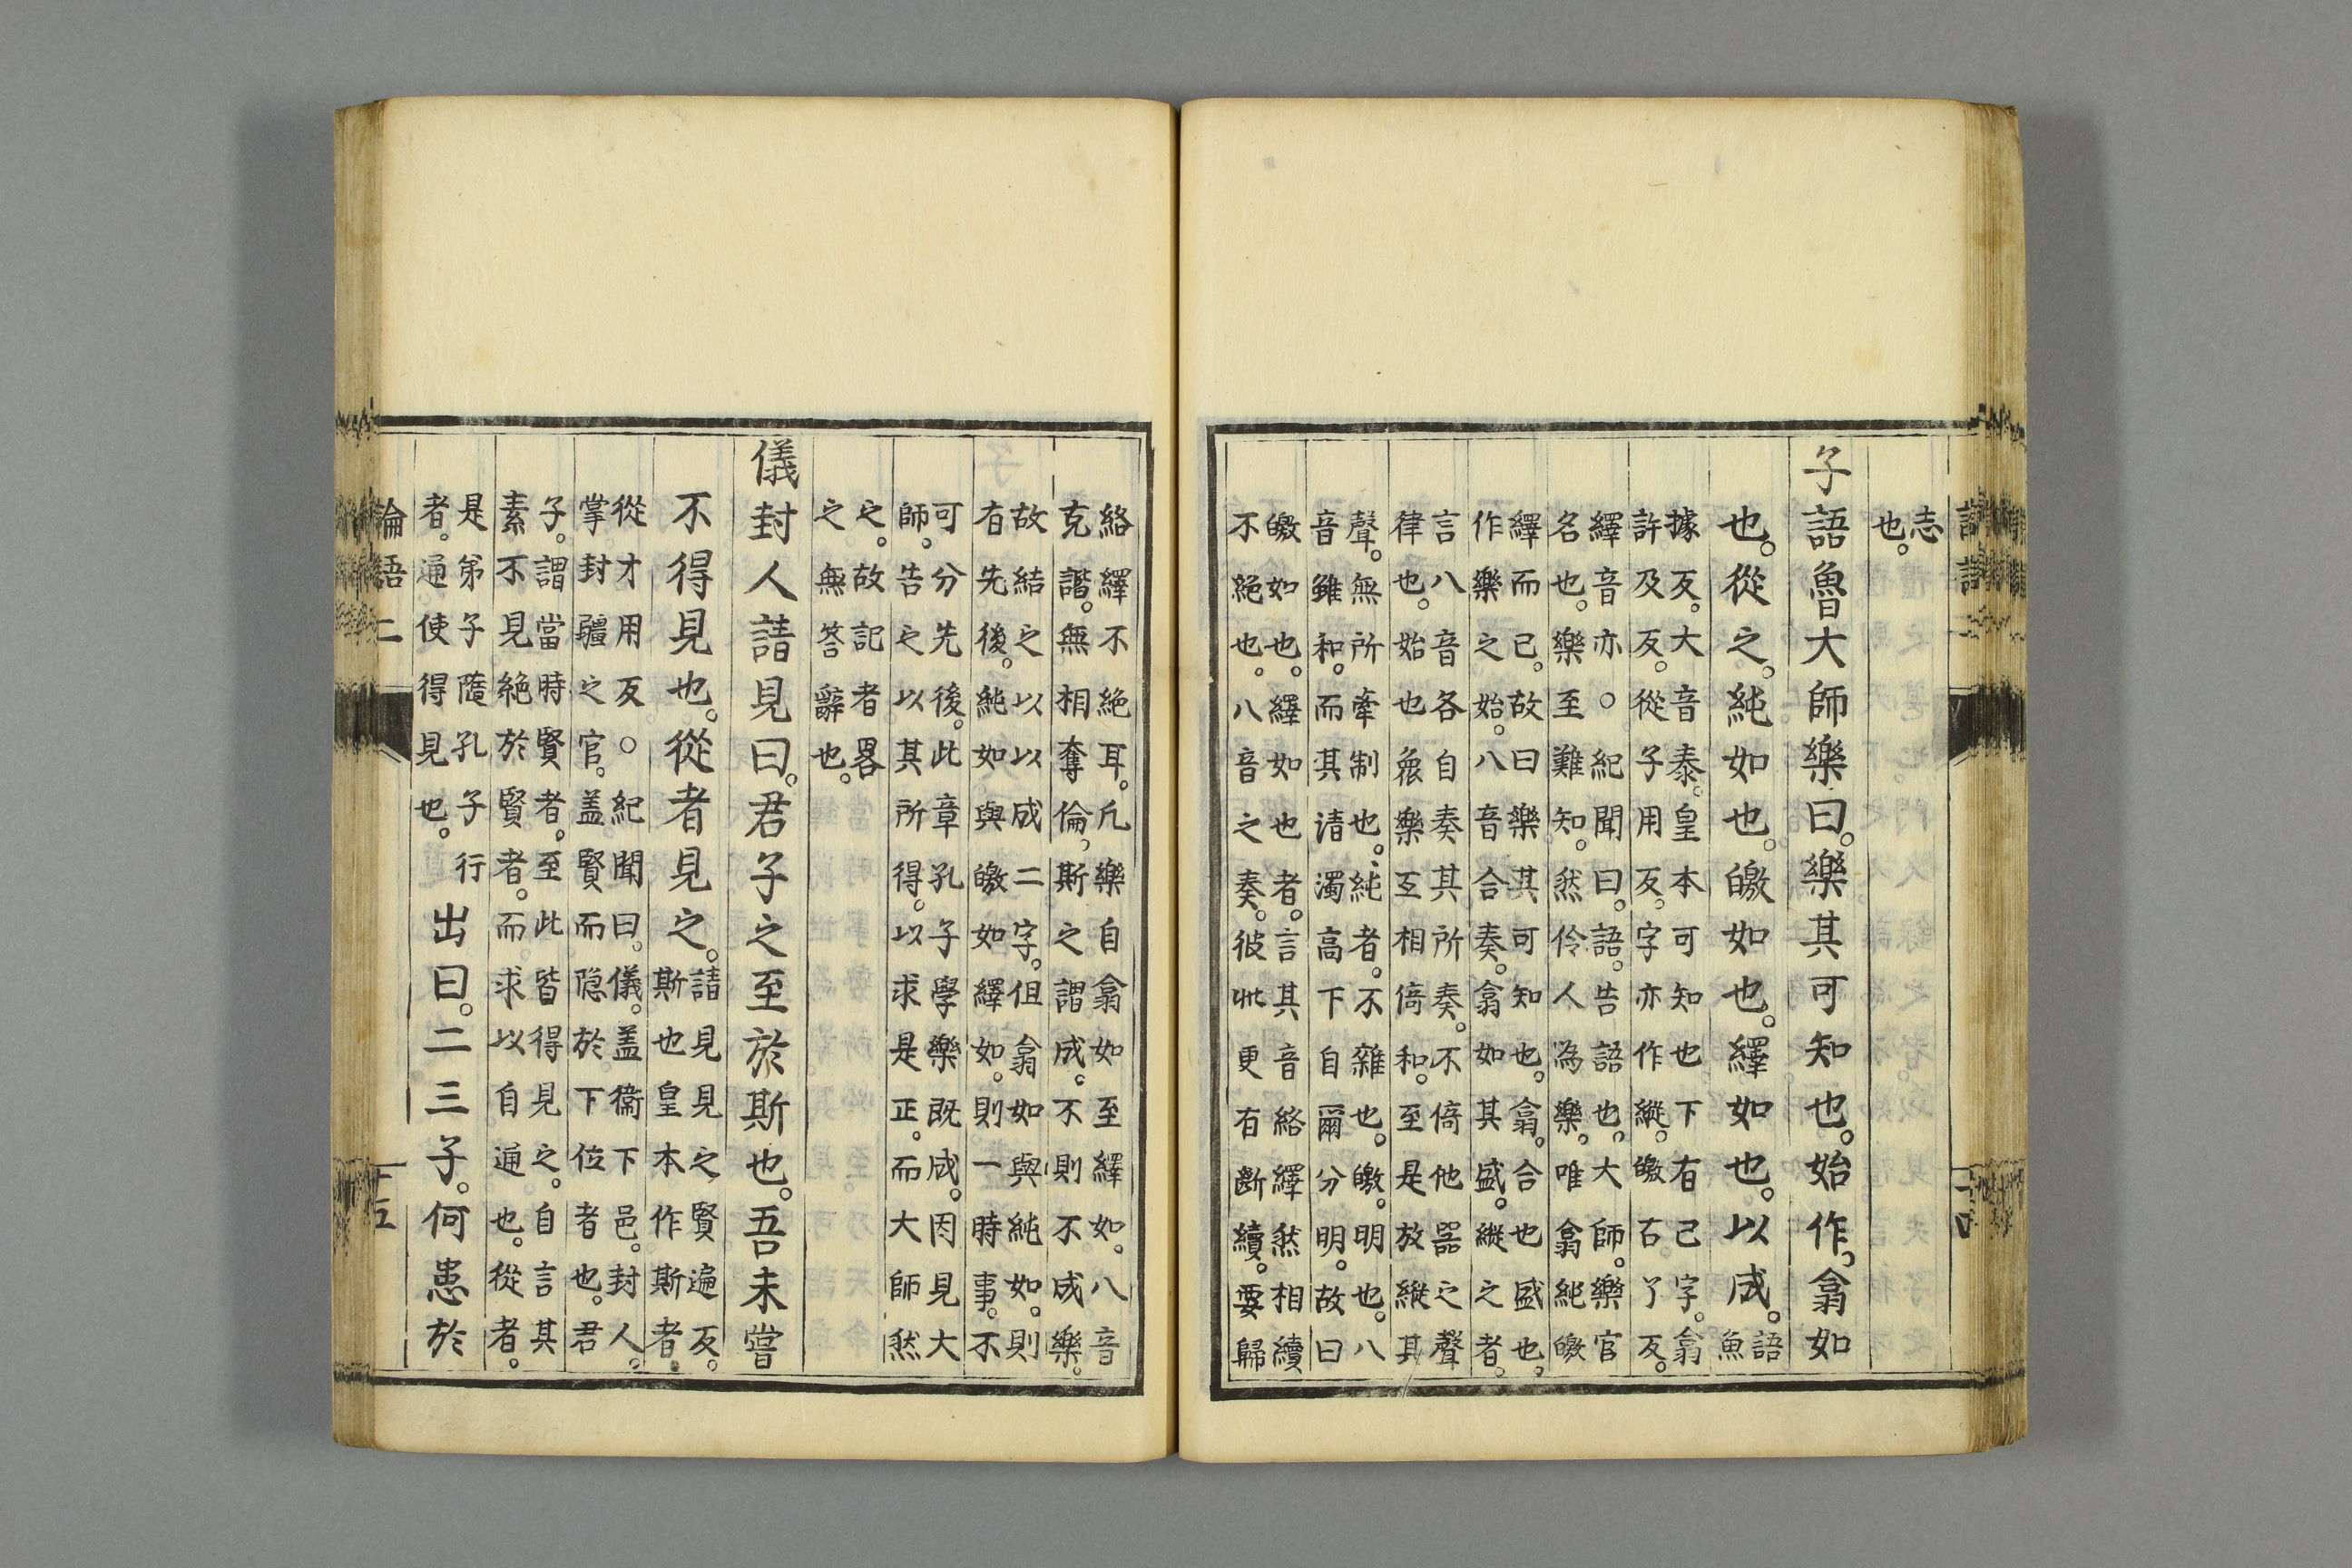 志
也。
子語魯大師樂曰。樂其可知也。始作。翕如
也。從之。純如也。皦如也。繹如也。以成。語
魚
據反。大音泰。皇本可知也下有已字。翕
許及反。從子用反。字亦作縱。皦古了反。
繹音亦○紀聞曰。語。告語也。大師。樂官
名也。樂至難知。然伶人為樂。唯翕純皦
繹而已。故曰樂其可知也。翕。合也盛也。
作樂之始。八音合奏。翕如其盛。縱之者。
言八音各自奏其所奏。不倚他器之聲
律也。始也衆樂互相倚和。至是放縱其
聲。無所牽制也。純者。不雜也。皦。明也。八
音雖和。而其清濁高下自爾分明。故曰
皦如也。繹如也者。言其音絡繹然相續
不絕也。八音之奏。彼此更有斷續。要歸
絡繹不絕耳。凡樂自翕如至繹如。八音
克諧。無相奪倫。斯之謂成。不則不成樂。
故結之以以成二字。但翕如與純如。則
有先後。純如與皦如繹如。則一時事。不
可分先後。此章孔子學樂既成。因見大
師。告之以其所得。以求是正。而大師然
之。故記者畧
之無答辭也。
儀封人請見曰。君子之至於斯也。吾未嘗
不得見也。從者見之。請見見之。賢遍反。
斯也皇本作斯者。
從才用反○紀聞曰。儀。盖衞下邑。封人。
掌封疆之官。盖賢而隐於下位者也。君
子。謂當時賢者。至此皆得見之。自言其
素不見絕於賢者。而求以自通也。從者。
是弟子隨孔子行
者。通使得見也。
出曰。二三子。何患於
論語二
十五